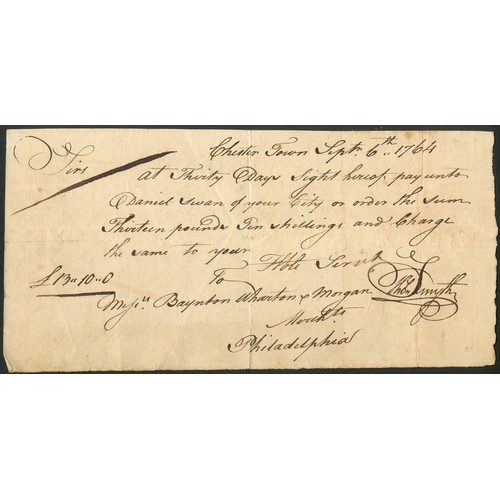 Chester Town Septr. 6th.. 1764
Sirs
at Thirty Days Sight hereof pay unto
Daniel Swan of your City or order the Sum
Thirteen pounds Ten Shillings and Charge
the same to your
Hble Servt
£13..10..0
To
Messrs Baynton Wharton & Morgan
Thos Smyth
Merchts
Philadelphia